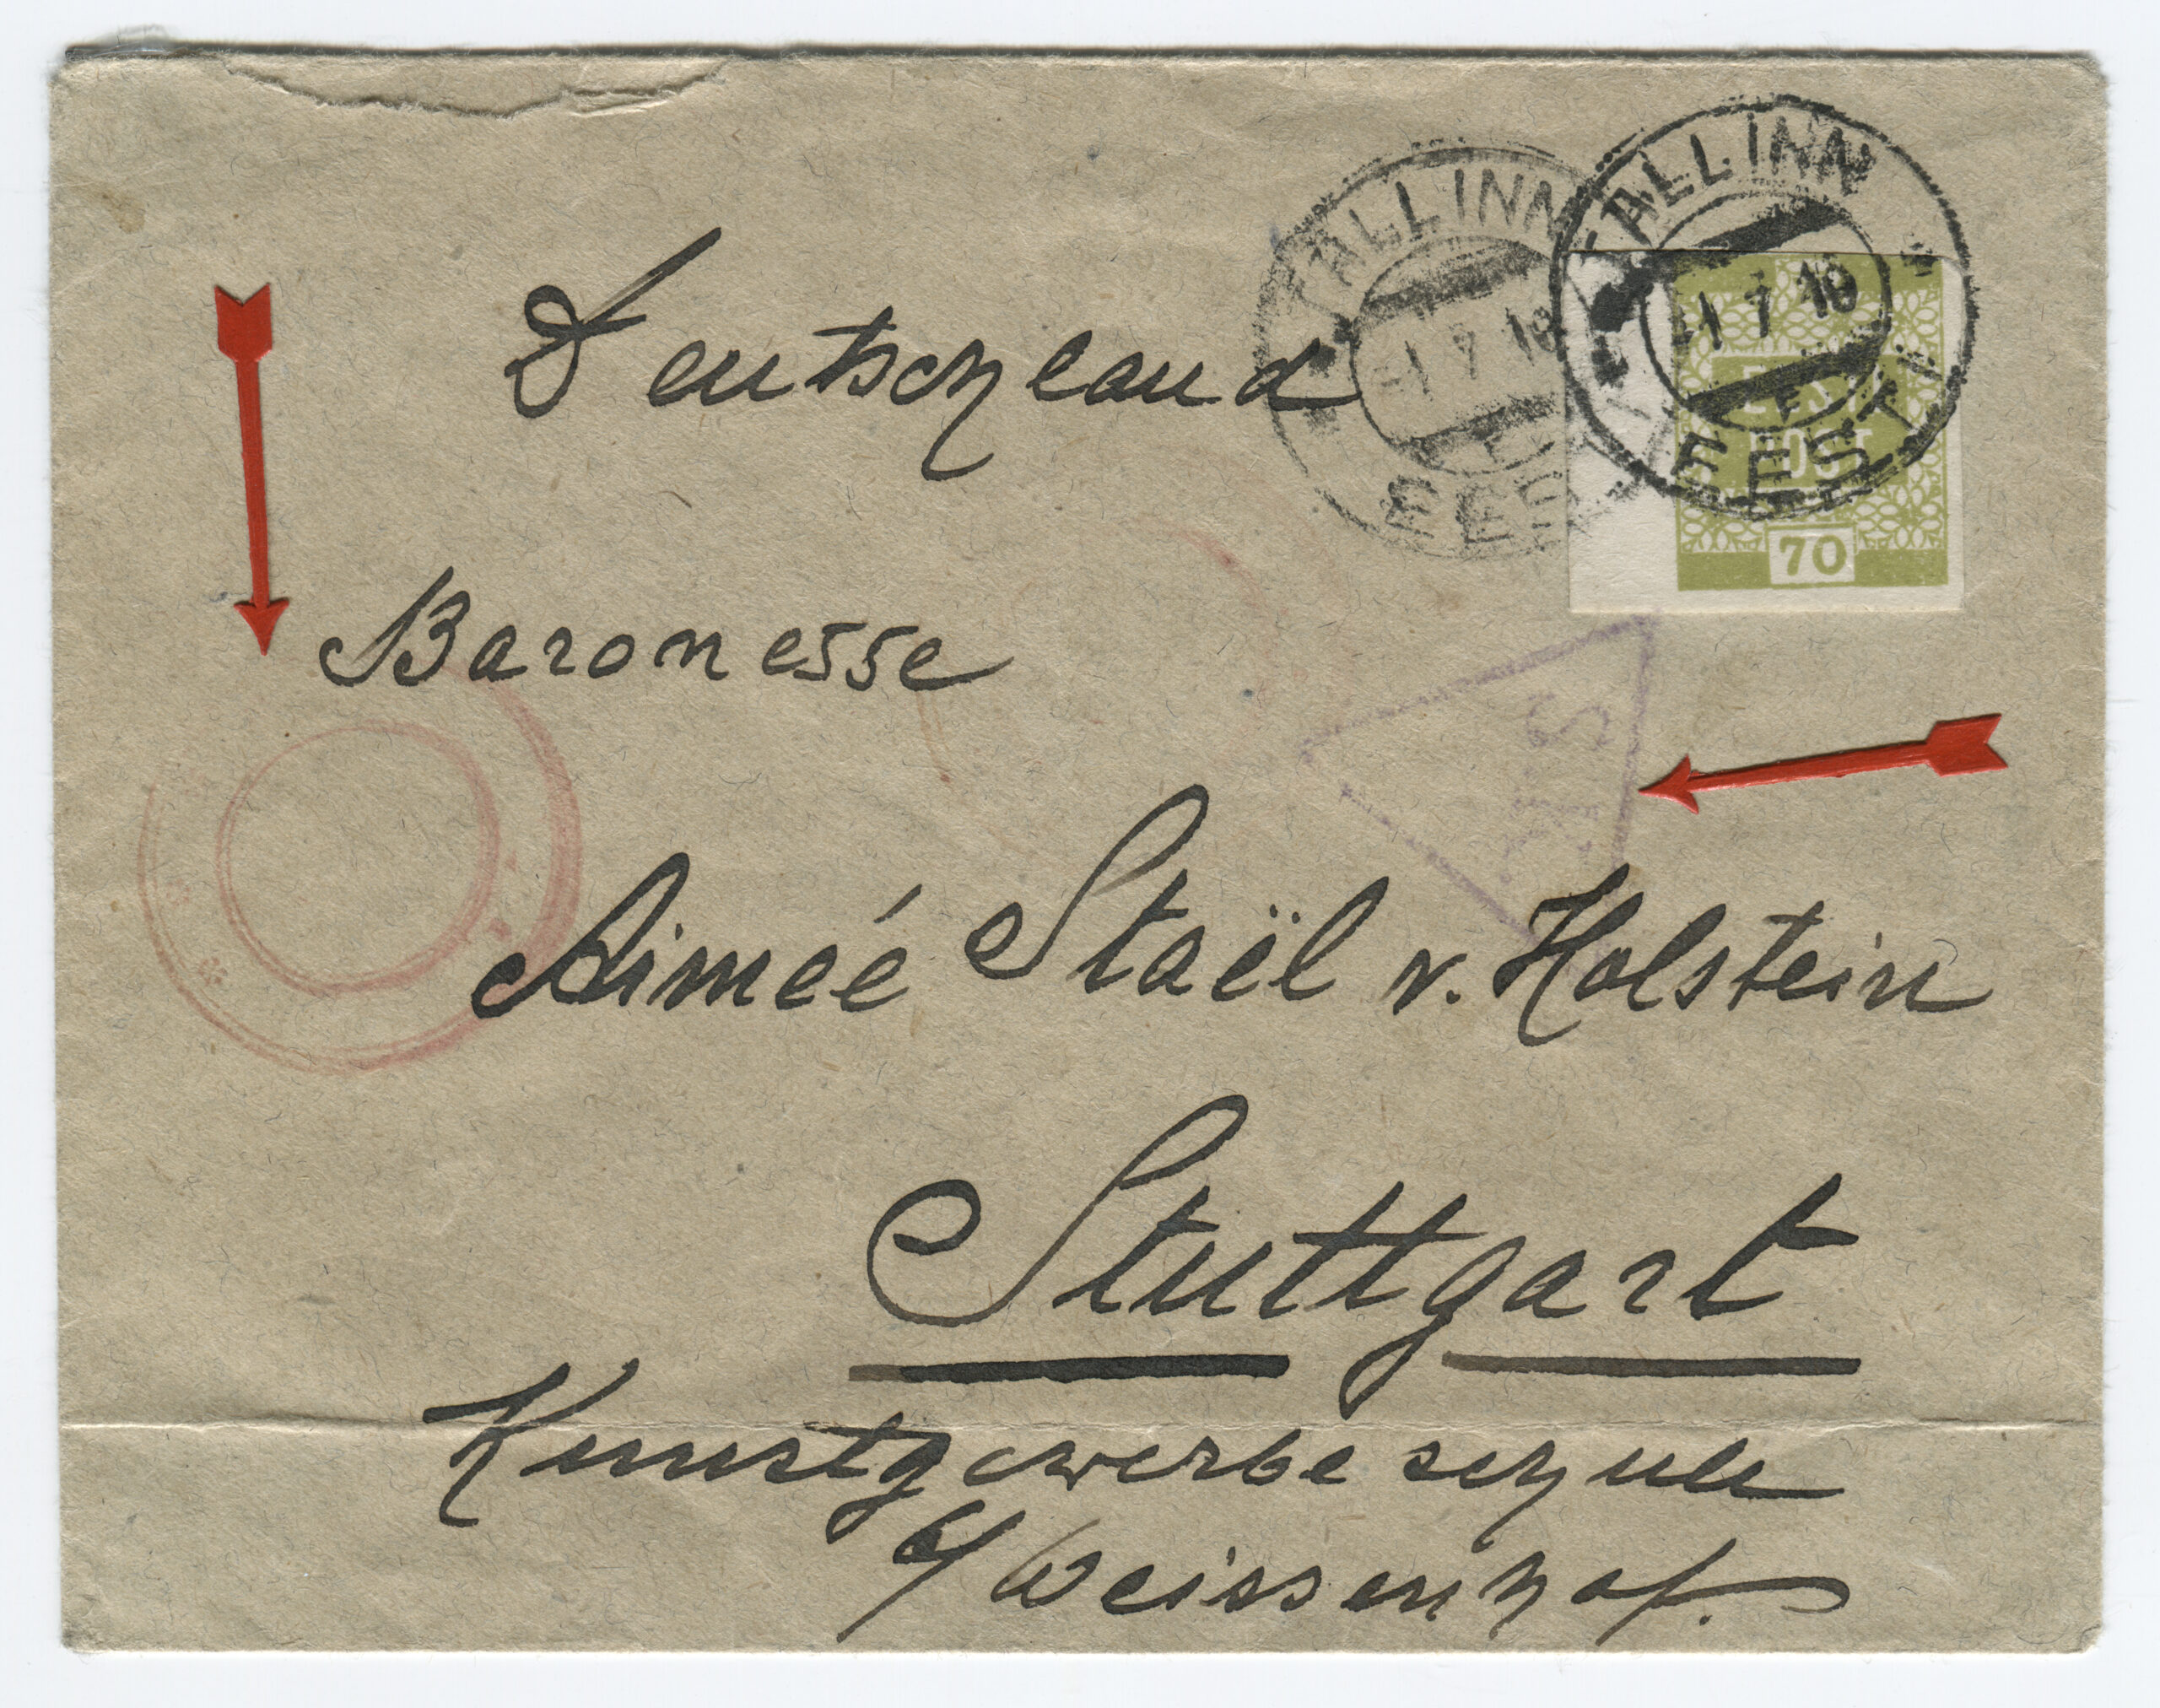 TALLINN
1 7 19
EESTI
TALLINN
1 7 19
E
EESTI
EESTI
POST
70
Deutschland
Baronesse
S
Aimeé Staël v. Holstein
Stuttgart
Kunstgewerbeschule
Weissenhof.